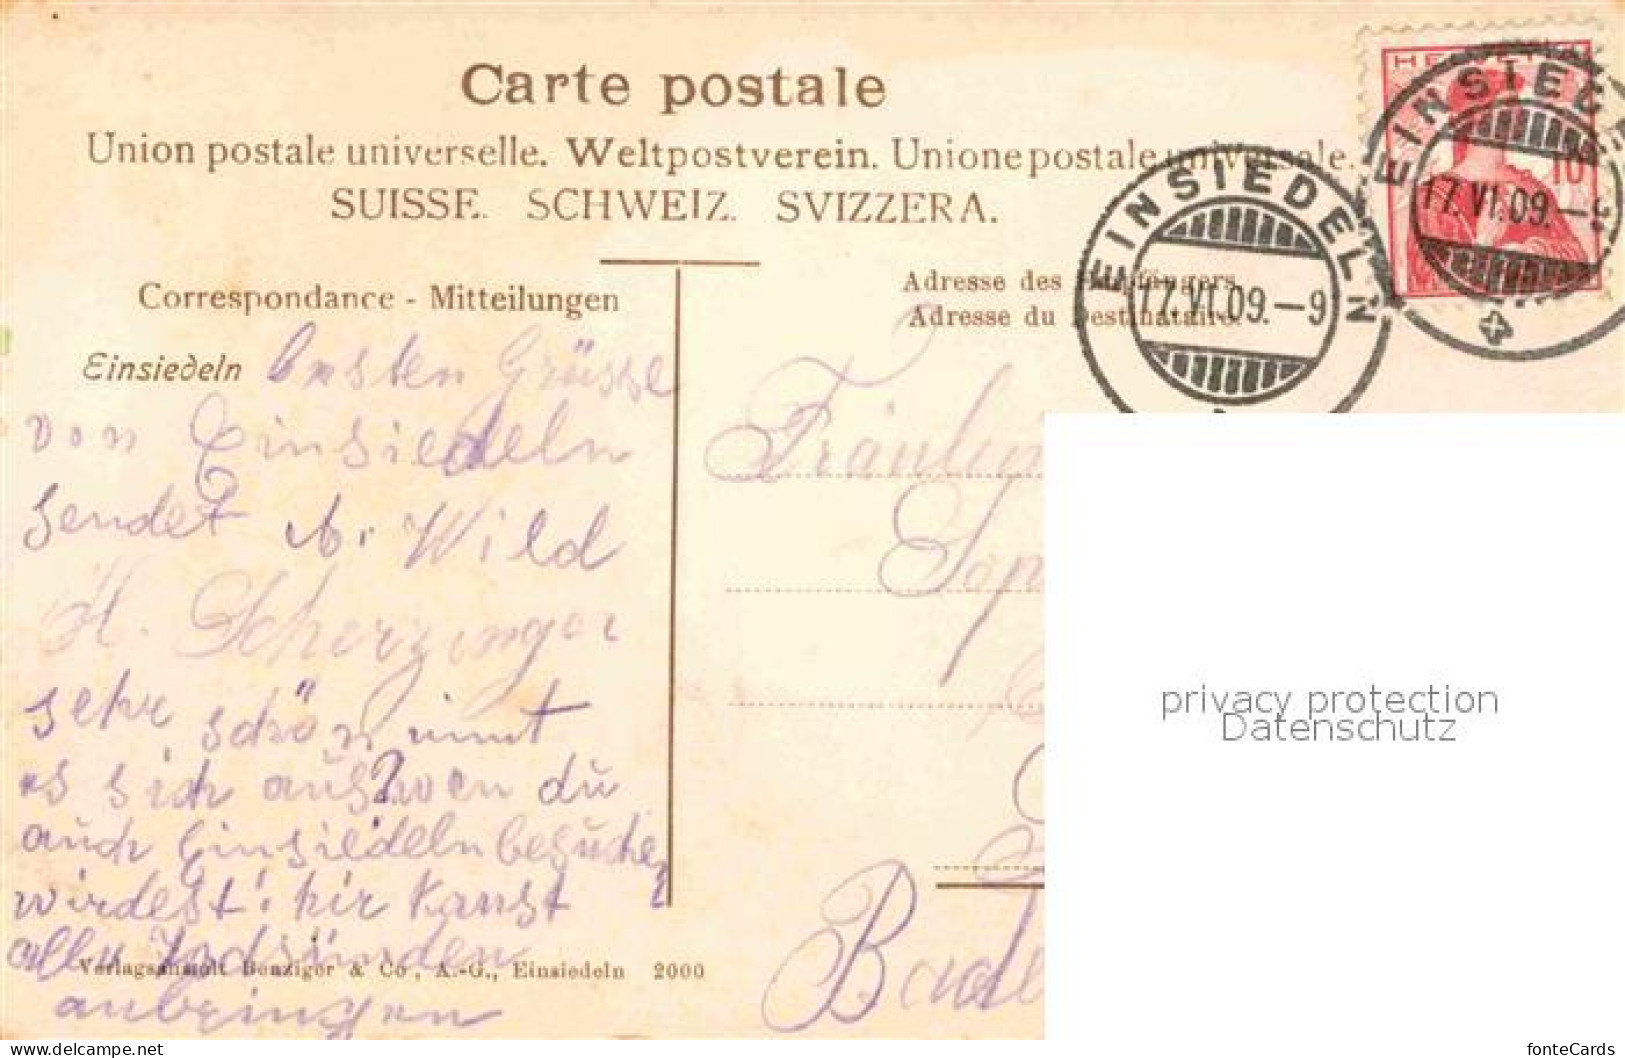 Carte postale
Union postale universelle. Weltpostverein. Unione postale universale.
SUISSE. SCHWEIZ. SVIZZERA.
HELVETIA
10
EINSIEDELN
17.VI.09.–9
EINSIEDELN
17.VI.09.–9
Correspondance - Mitteilungen
Adresse des Empfängers.
Adresse du Destinataire.
Einsiedeln
besten Grüsse
von Einsiedeln
sendet A. Wild
H. Scherzinger
sehr schön nimt
es sich aus wen du
auch Einsiedeln besuchen
wirdest! hir kanst
alle Todsünden
anbringen
Fräulein
Sop
Bade
Verlagsanstalt Benziger & Co., A.-G., Einsiedeln 2000
privacy protection
Datenschutz
www.delcampe.net
fonteCards